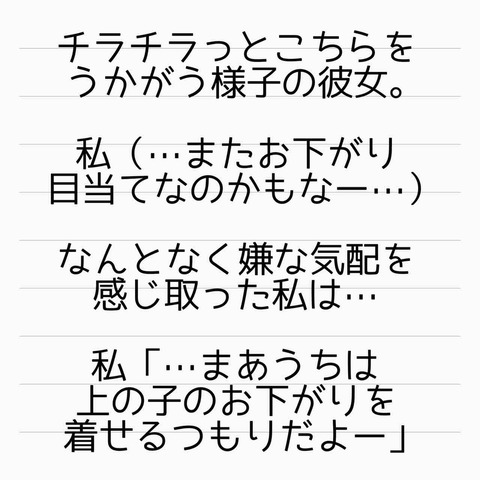 チラチラっとこちらを
うかがう様子の彼女。
私（…またお下がり
目当てなのかもなー…）
なんとなく嫌な気配を
感じ取った私は…
私「…まあうちは
上の子のお下がりを
着せるつもりだよー」